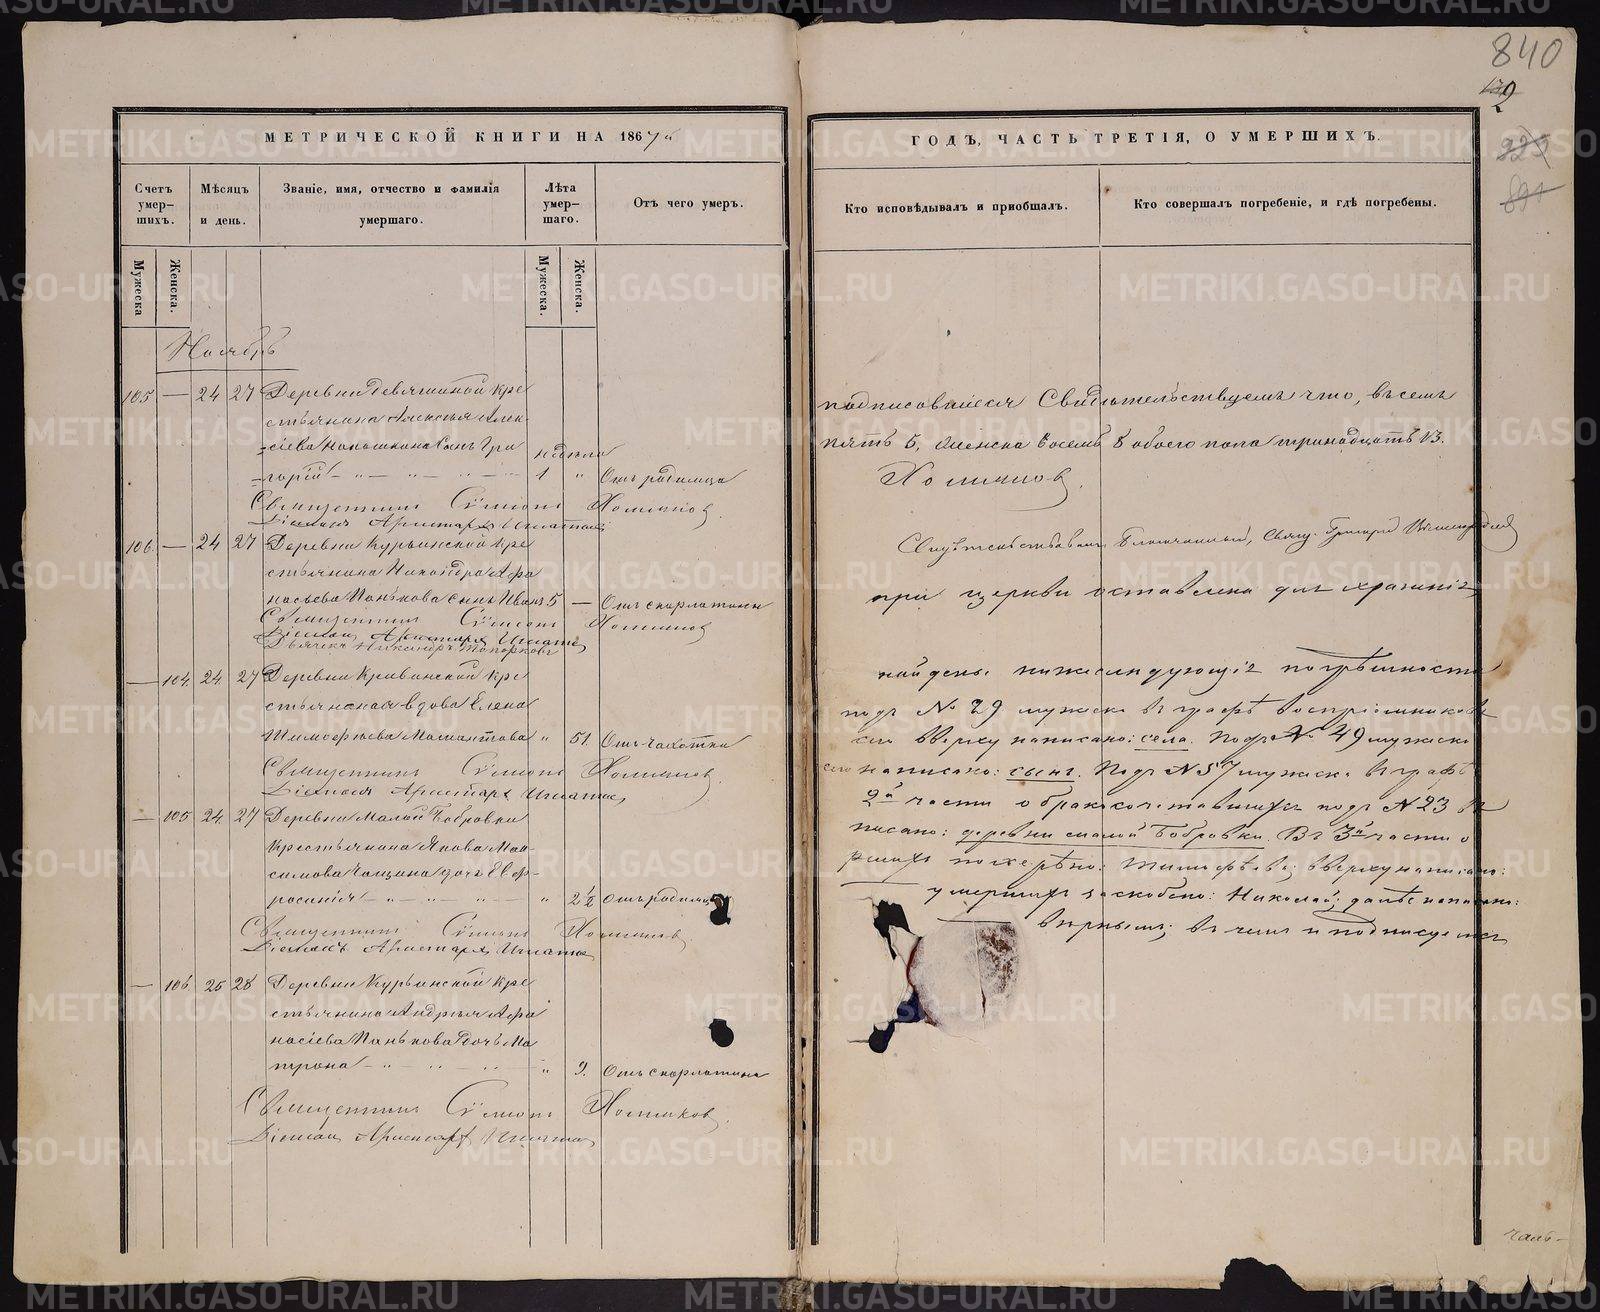 840
МЕТРИЧЕСКОЙ КНИГИ НА 1867й
ГОДЪ, ЧАСТЬ ТРЕТІЯ, О УМЕРШИХЪ.
Счетъ умер-шихъ.
Мѣсяцъ и день.
Званіе, имя, отчество и фамилія умершаго.
Лѣта умер-шаго.
Отъ чего умеръ.
Кто исповѣдывалъ и пріобщалъ.
Кто совершалъ погребеніе, и гдѣ погребены.
Мужеска
Женска.
Мужеска.
Женска.
Ноябрь
105 — 24 27 Деревни Девяшиной кре
стьянина Алексѣя Алек-
сіева сынъ Гри недѣли
горій 1 " Отъ родимца
Священникъ Сѵмеонъ Хомяковъ
Діаконъ Аристархъ Игнатьевъ
106. — 24 27 Деревни Курьинской кре
стьянина Никандра Афа
насьева Панькова сынъ Иванъ 5 — Отъ скарлатины
Священникъ Сѵмеонъ Хомяковъ
Діаконъ Аристархъ Игнатьевъ
Дьячекъ Никаноръ Топорковъ
— 104. 24. 27 Деревни Кривинской кре
стьянская вдова Елена
Тимофеева Мамонтова " 51. Отъ чахотки
Священникъ Сѵмеонъ Хомяковъ
Діаконъ Аристархъ Игнатьевъ
— 105 24. 27 Деревни Малой Бобровки
крестьянина Якова Мак-
симова дочь Евф-
росинія " 2½ Отъ родимца
Священникъ Сѵмеонъ Хомяковъ
Діаконъ Аристархъ Игнатьевъ
— 106. 25 28 Деревни Курьинской кре
стьянина Андрея Афа
насіева Панькова дочь Ма
трона " 9. Отъ скарлатины
Священникъ Сѵмеонъ Хомяковъ.
Діаконъ Аристархъ Игнатьевъ
подписавшіеся Свидѣтельствуемъ что, въ семъ
пять 5, женска восемь 8 обоего пола тринадцать 13.
Хомяковъ.
Свидѣтельствовалъ Благочинный, Свящ. Григорій
при церкви оставлена для храненія
найдены нижеслѣдующія погрѣшности
подъ № 29 мужеска въ графѣ воспріемниковъ
вверху написано: села. Подъ № 49 мужеска
написано: сынъ. Подъ № 57 мужеска въ графѣ
2й части о бракосочетавшихся подъ № 23
писано: деревни малой Бобровки. Въ 3й части о
Тимофѣева: вверху написано:
умершихъ заскоблено: Николай: далѣе написано:
вѣрнымъ; въ чемъ и подписуемся
чаль-
METRIKI.GASO-URAL.RU